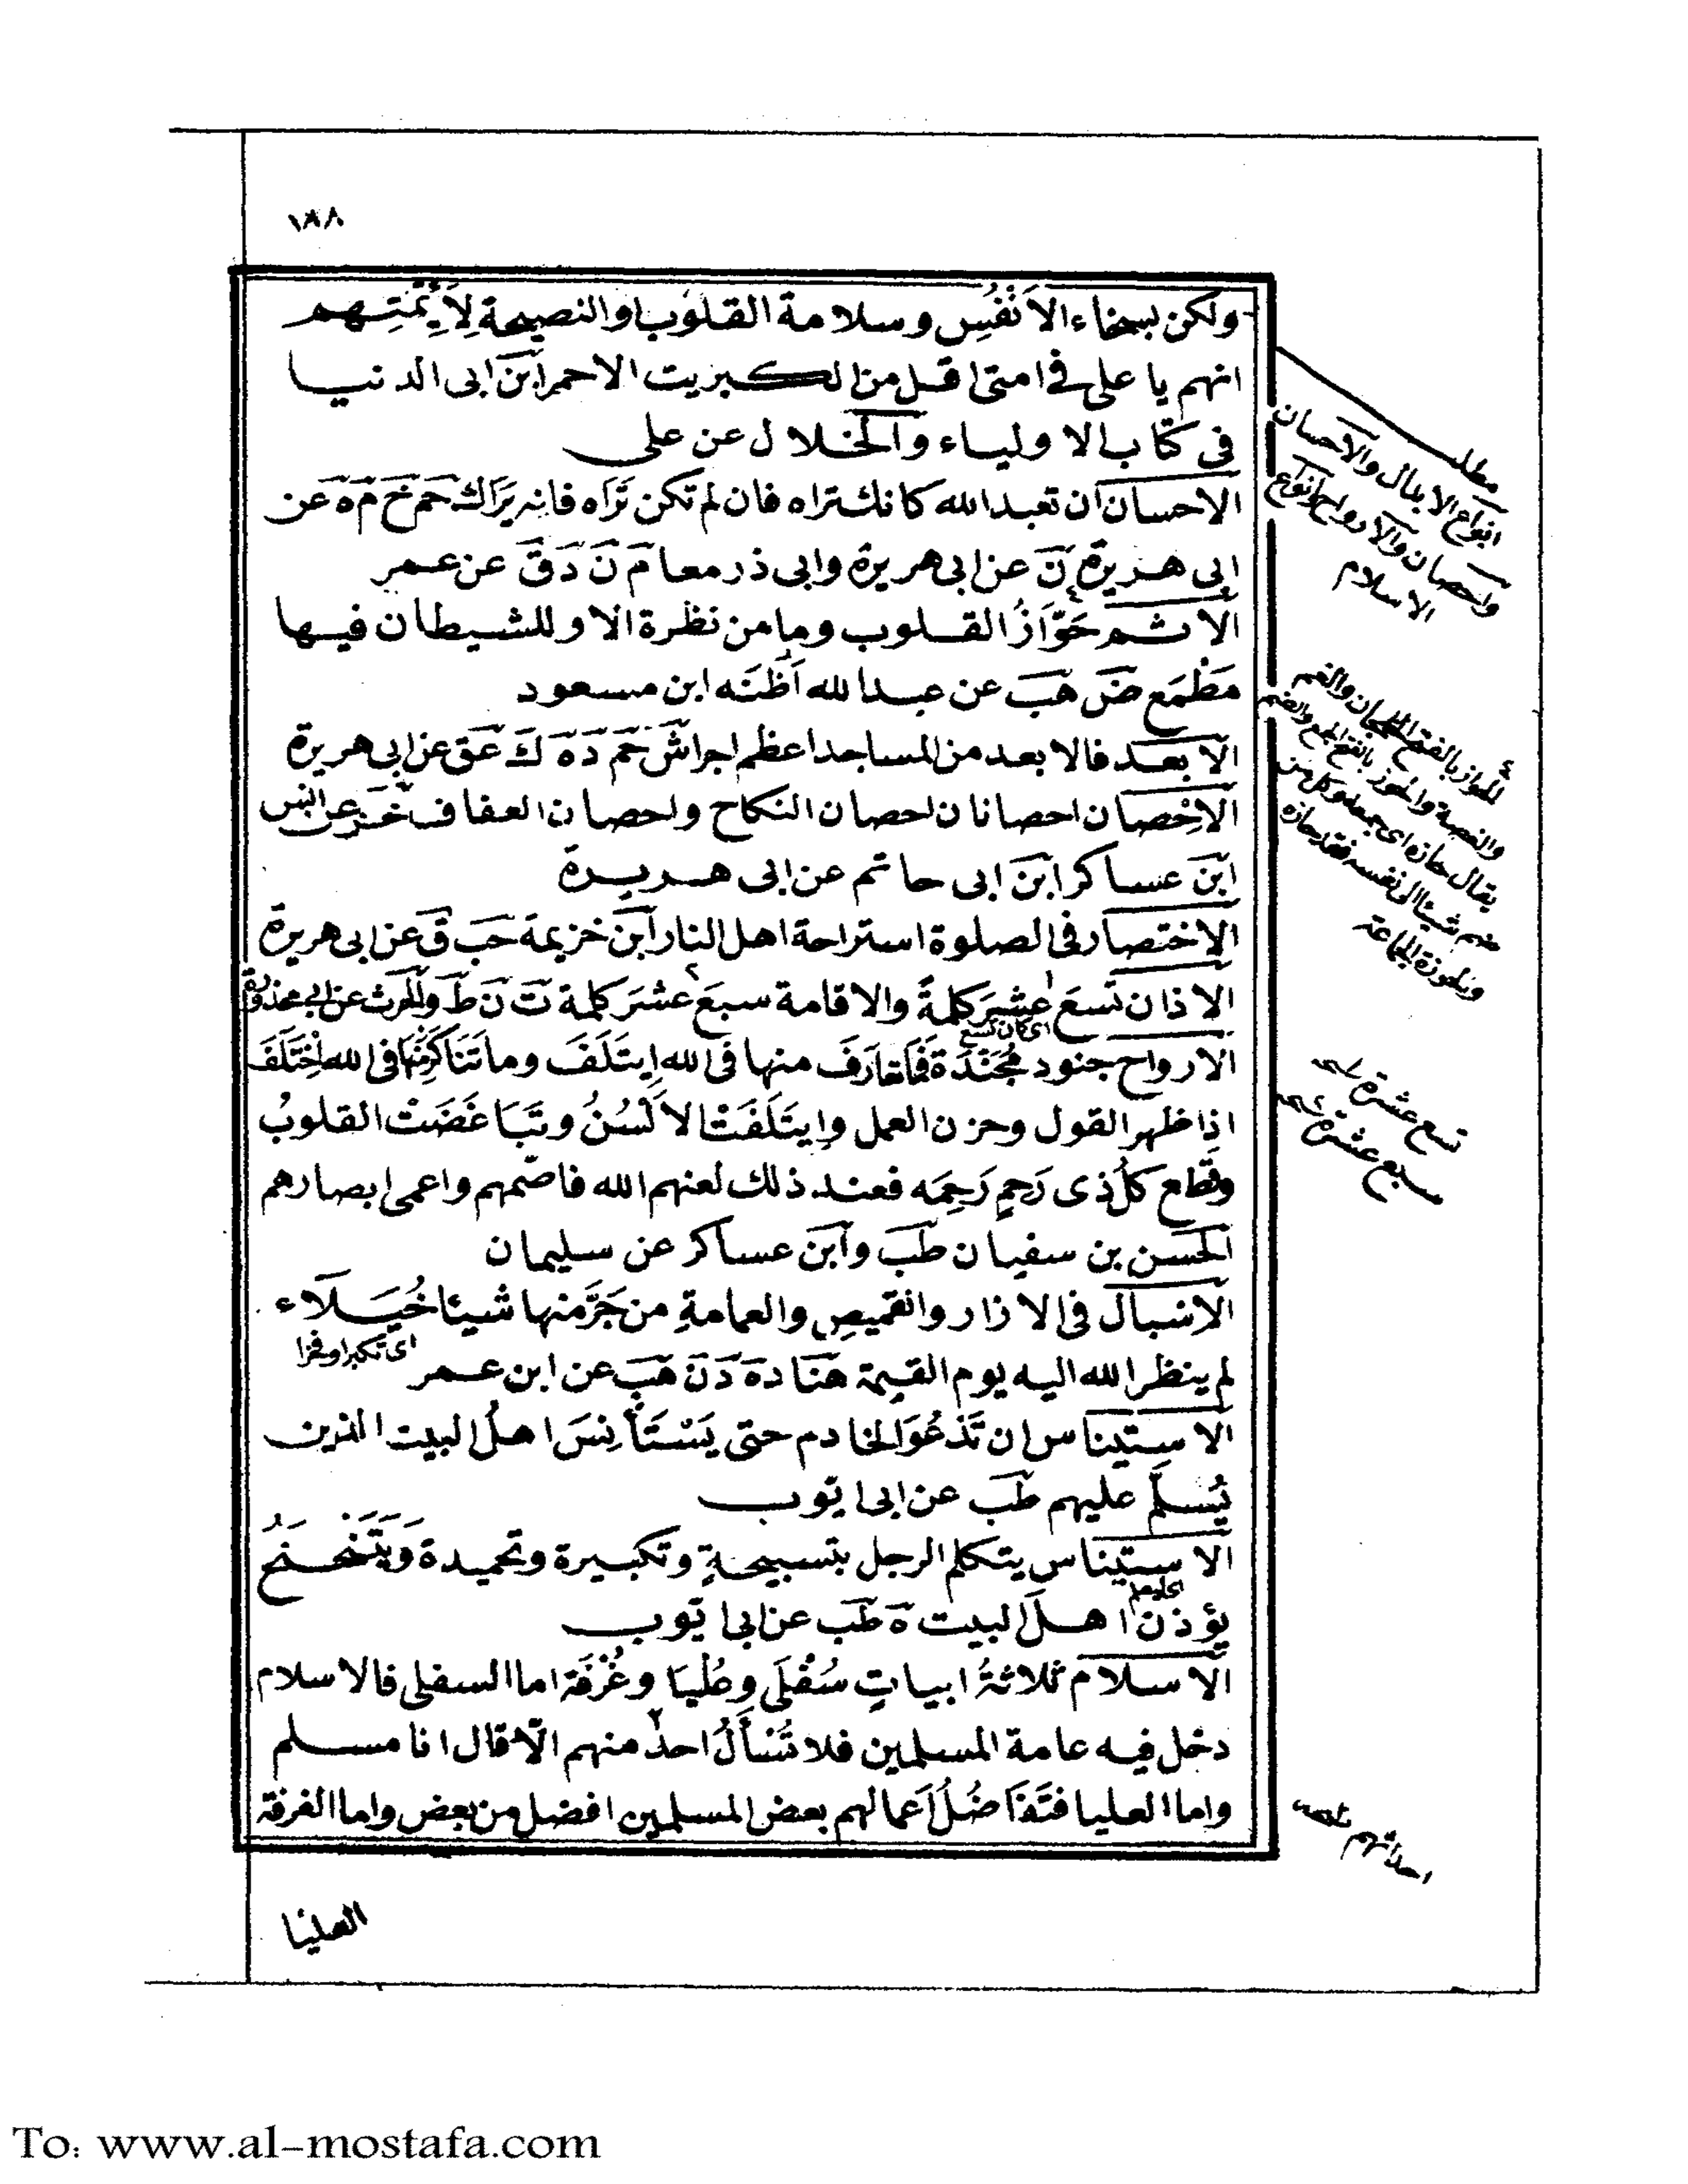 ١٨٨
ولكن بسخاء الاَنْفُسِ وسلامة القلوب والنصيحة لِاَئِمَّتِهم
انهم يا على فى امتى اقل من الكبريت الاحمر ابن ابى الدنيا
فى كتاب الاولياء والخلال عن على
الاحسان ان تعبد الله كانك تراه فان لم تكن تَرَاه فانه يَرَاك حم خ م ه عن
ابى هريرة ن عن ابى هريرة وابى ذر معا م ن د ق عن عمر
الاثم حَوَّازُ القلوب وما من نظرة الا وللشيطان فيها
مَطْمَع ض هب عن عبد الله اظنه ابن مسعود
الابعد فالابعد من المساجد اعظم اجرا ش حم د ه ك عق عن ابى هريرة
الاِحْصان احصانان احصان النكاح واحصان العفاف
ابن عساكر ابن ابى حاتم عن ابى هريرة
الاختصار فى الصلوة استراحة اهل النار ابن خزيمة حب ق عن ابى هريرة
الاذان تسعَ عشرَ كلمةً والاقامة سبعَ عشرَ كلمة ت ن ط عن ابى محذورة
اى كان تسع
الارواح جنود مُجَنَّدَة فَمَا تعَارَفَ منها فى الله اِيتَلَفَ وما تَنَاكَرَ منها فى الله اِخْتَلَفَ
اذا ظهر القول وحزن العمل وايتَلَفَتْ الاَلْسُنُ وتَبَاغَضَتْ القلوبُ
وقطع كلُّ ذى رَحِمٍ رَحِمَه فعند ذلك لعنهم الله فاصمهم واعمى ابصارهم
الحسن بن سفيان طب وابن عساكر عن سليمان
الاسْبَال فى الازار والقميصِ والعمامةِ من جَرَّ منها شيئا خُيَلَاء
اى تكبرا وفخرا
لم ينظر الله اليه يوم القيمة هناد ه د ن هب عن ابن عمر
الاستيناس ان تَدْعُوَ الخادم حتى يَسْتَأْنِسَ اهلُ البيت الذين
يُسلّم عليهم طب عن ابى ايوب
الاستيناس يتكلم الرجل بتسبيحةٍ وتكبيرة وتحميدة وَيَتَنَحْنَحُ
يؤذن اهلَ البيت ه طب عن ابى ايوب
الاسلام ثلاثةُ ابياتٍ سُفْلَى وعُلْيَا وغُرْفَة اما السفلى فالاسلام
دخل فيه عامة المسلمين فلا تُسْأَلُ احدٌ منهم الّا قال انا مسلم
واما العليا فتَفَاضُلُ اَعمالهم بعض المسلمين افضل من بعض واما الغرفة
العليا
مطلب
انواع الابال والاحسان
واحصان والارواح وانواع
الاسلام
والغصة والحوز بالفتح الجمع والضم
يقال حازه اى جمعه وكل من
ضم شيئا الى نفسه فقد حازه
تسع عشرة
سبع عشرة
احدائهم
To: www.al-mostafa.com